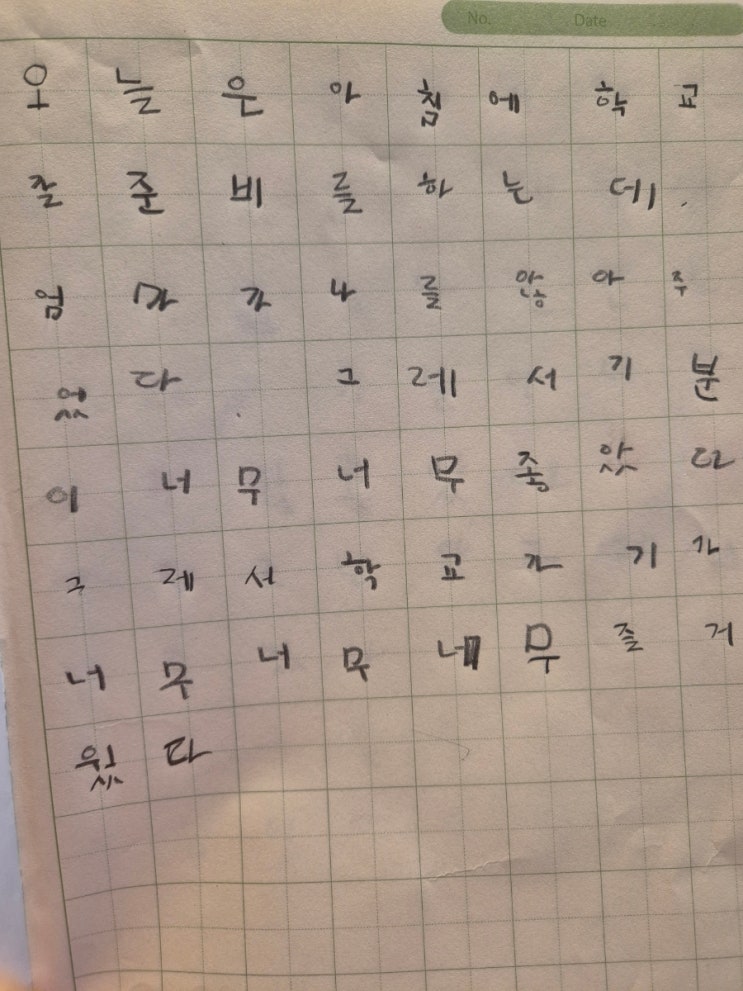 No. Date
오늘은아침에학교
갈준비를하는데.
엄마가나를않아주
었다. 그레서기분
이너무너무좋았다
그레서학교가기가
너무너무너무즐거
웠다